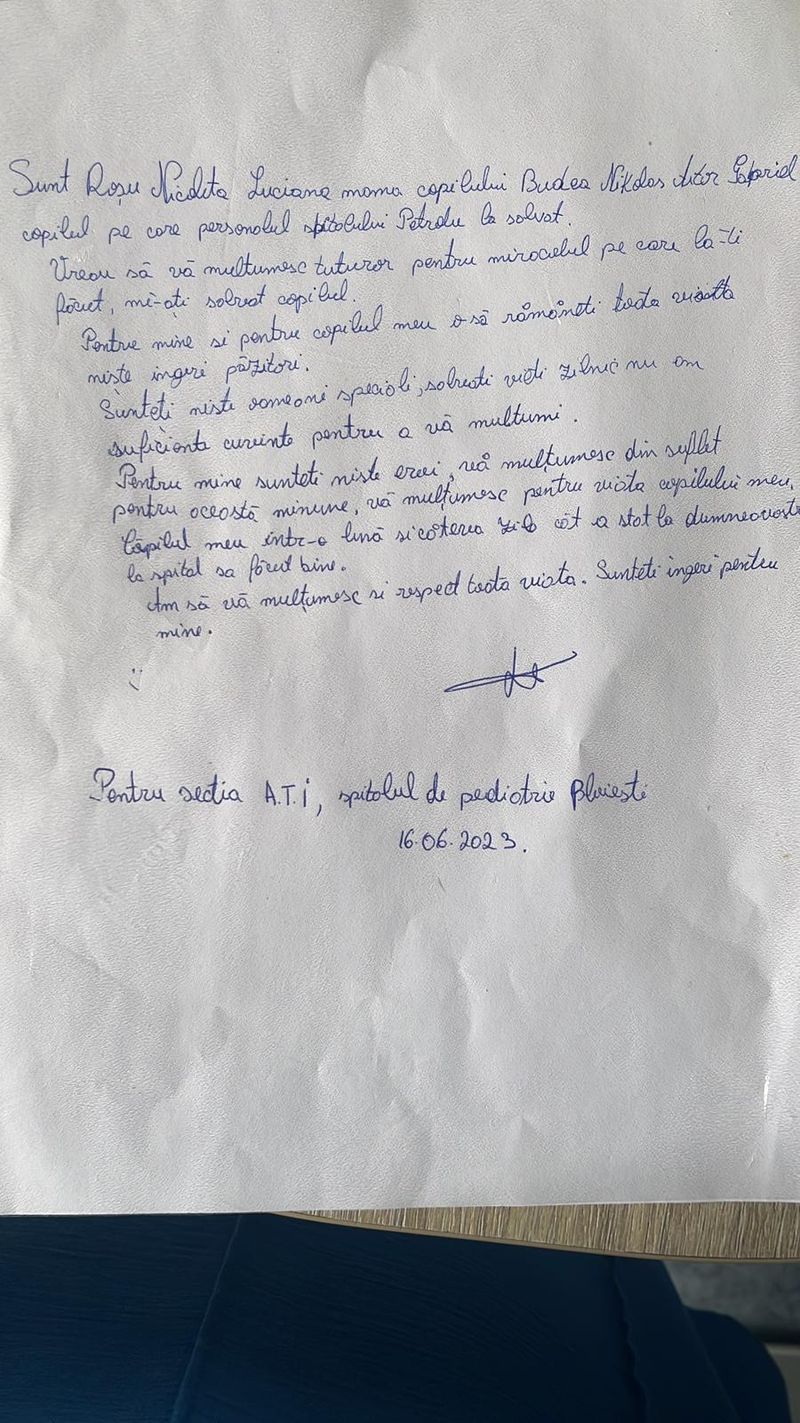 Sunt Roșu Nicoleta Luciana mama copilului Budea Nikolas Aitor Gabriel
copilul pe care personalul spitalului Petrolu la salvat.
Vreau să vă multumesc tuturor pentru miracolul pe care la-ti
făcut, mi-ați salvat copilul.
Pentru mine si pentru copilul meu o să rămâneti toata viata
niste ingeri păzitori.
Sunteti niste oameni speciali, salvati vieti zilnic nu am
suficiente cuvinte pentru a vă multumi.
Pentru mine sunteti niste eroi, vă multumesc din suflet
pentru această minune, vă mulțumesc pentru viata copilului meu.
Copilul meu intr-o lună si câteva zile cât a stat la dumneavoastră
la spital sa făcut bine.
Am să vă mulțumesc si respect toata viata. Sunteti ingeri pentru
mine.
:)
Pentru sectia A.T.i, spitalul de pediatrie Ploiesti
16.06.2023.